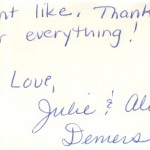 like. Thank
everything!
Love,
Julie &
Demers